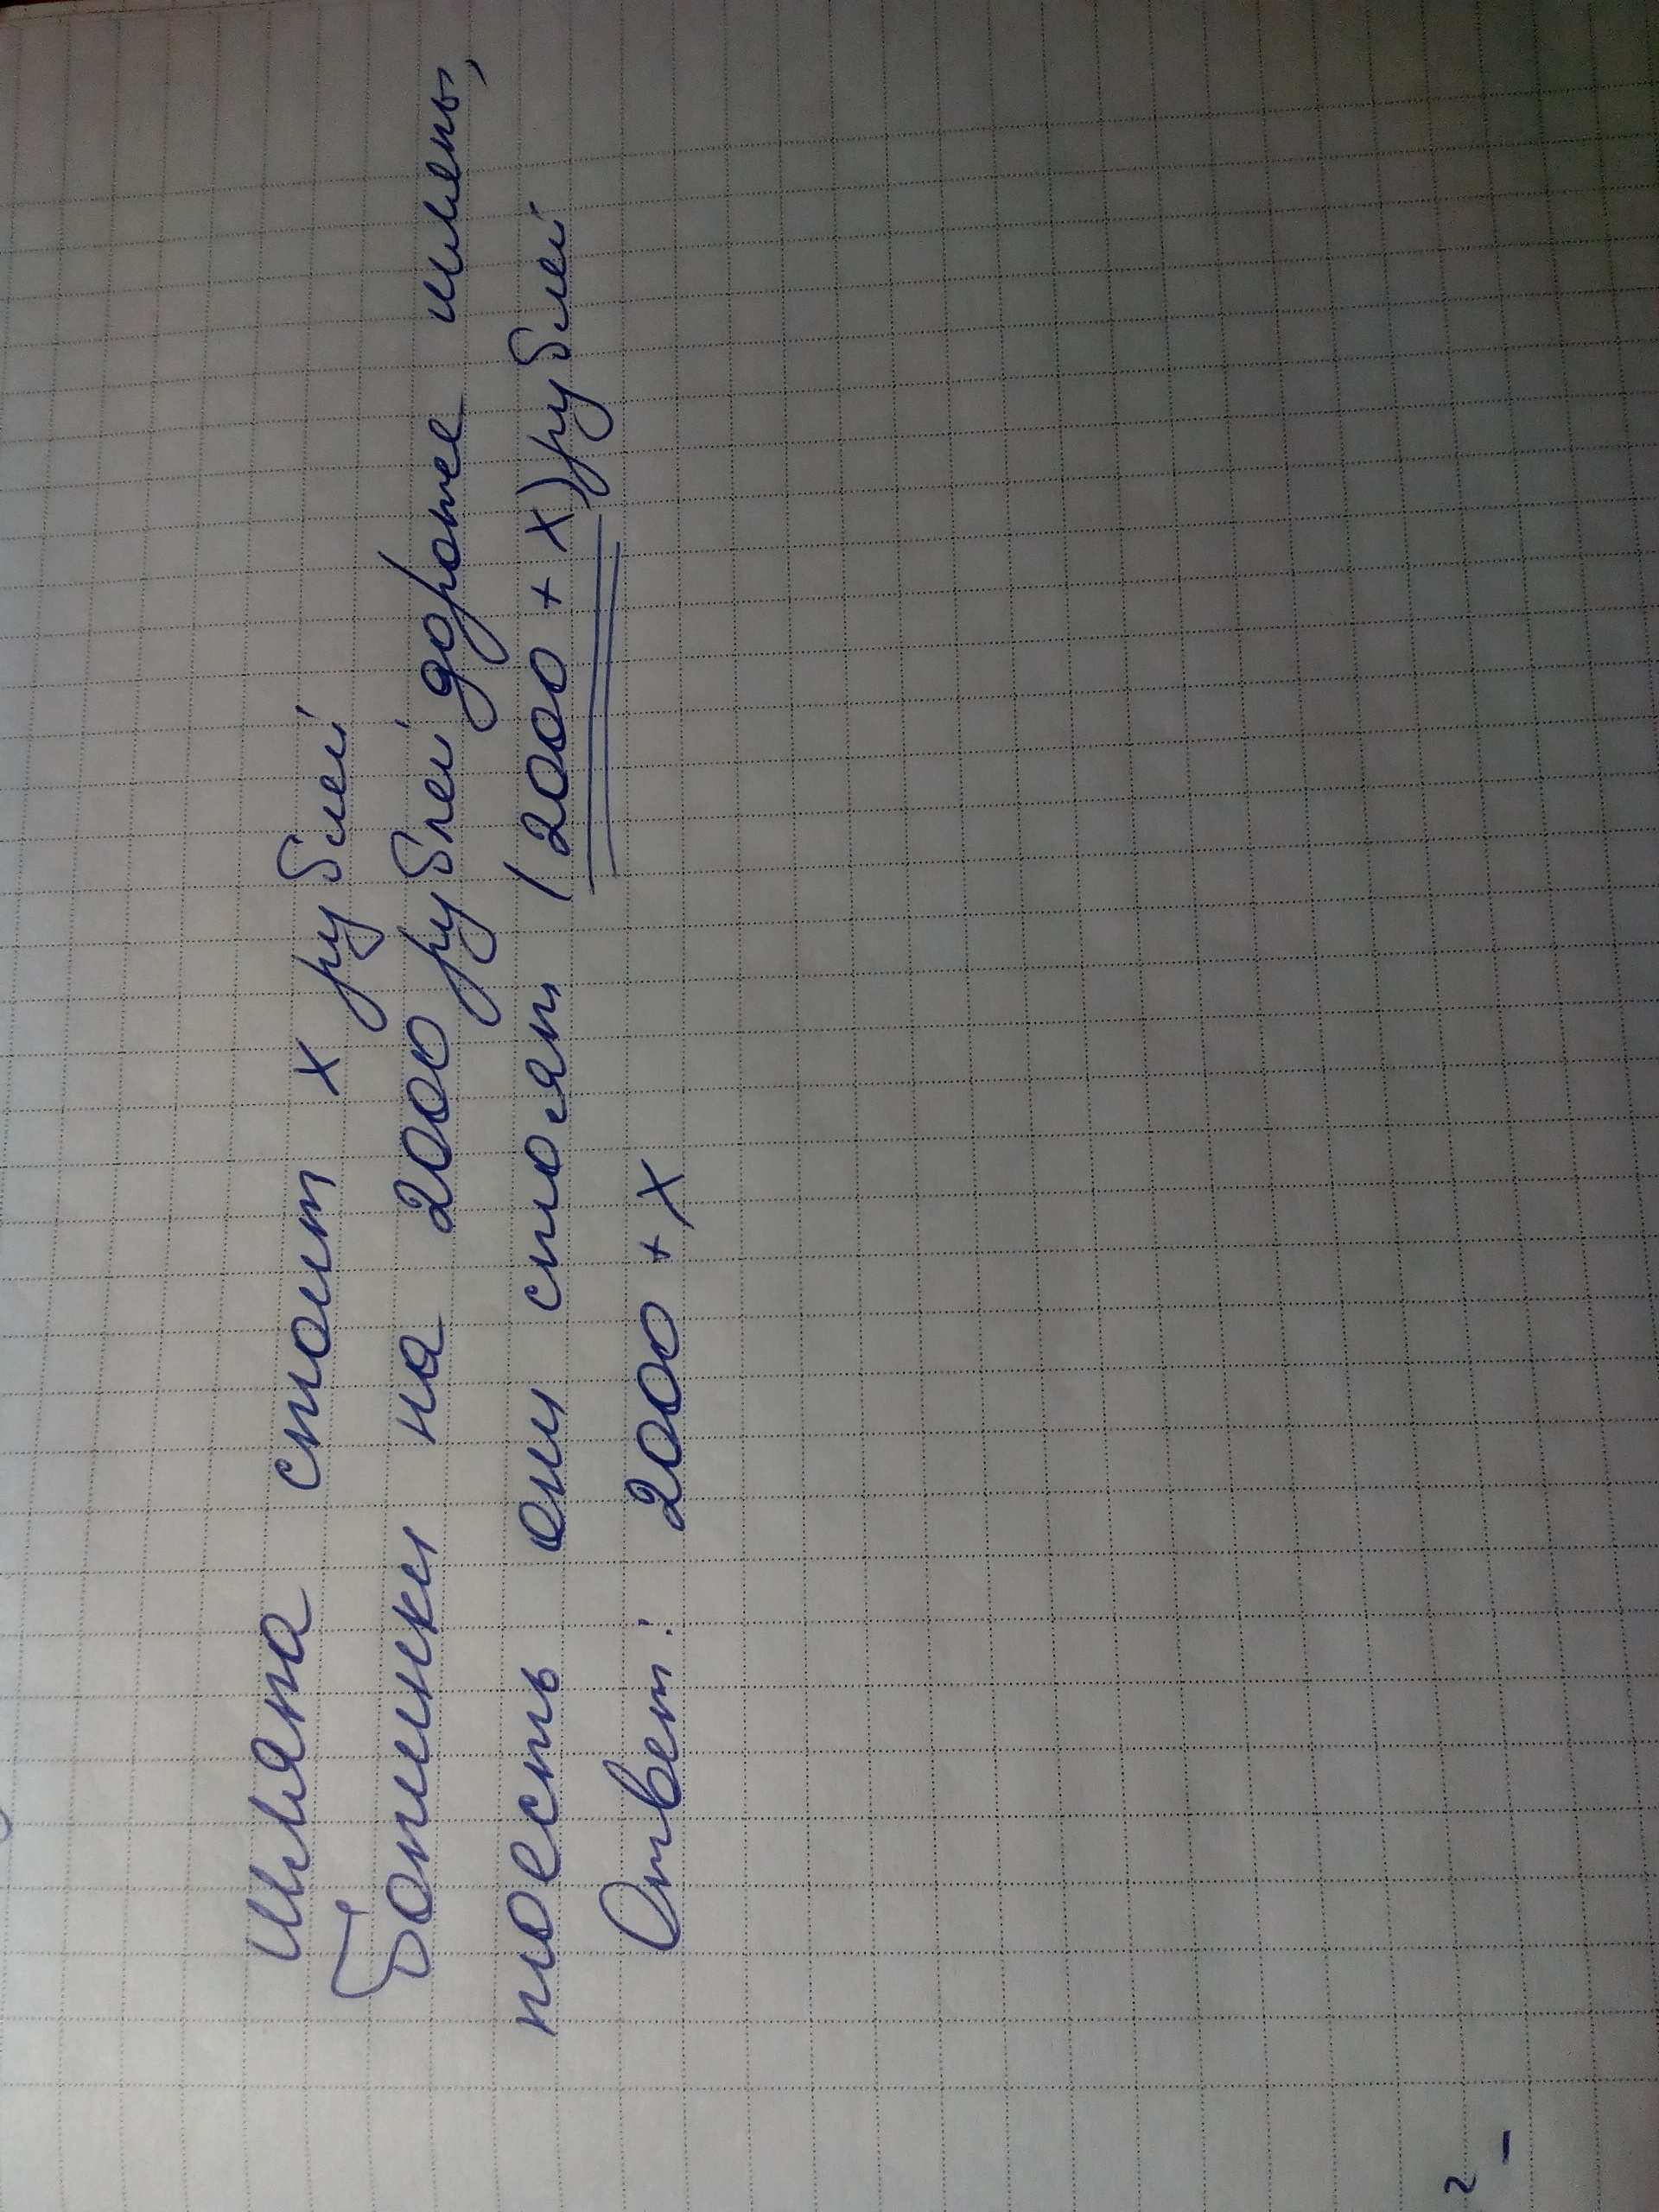 Шляпа стоит х рублей
Ботинки на 2000 рублей дороже шляпы,
тоесть они стоят (2000 + х) рублей
Ответ: 2000 + х
2